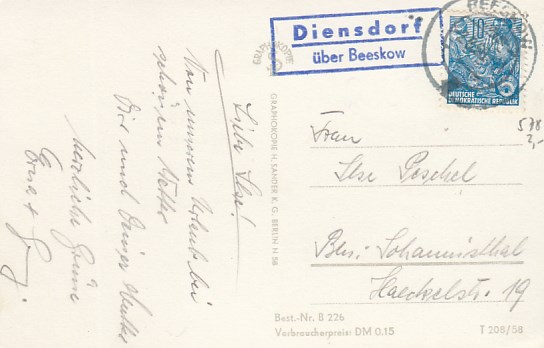 Diensdorf
über Beeskow
BEESKOW
10
DEUTSCHE
DEMOKRATISCHE REPUBLIK
GRAPHOKOPIE
GRAPHOKOPIE H. SANDER K. G. BERLIN N 58
Liebe Ilse!
Von unserem Urlaub bei
schönem Wetter
Dir und Deiner Mutter
herzliche Grüße
578
2,-
Frau
Ilse Poschel
Bln.-Johannisthal
Haeckelstr. 19
Best.-Nr. B 226
Verbraucherpreis: DM 0.15
T 208/58